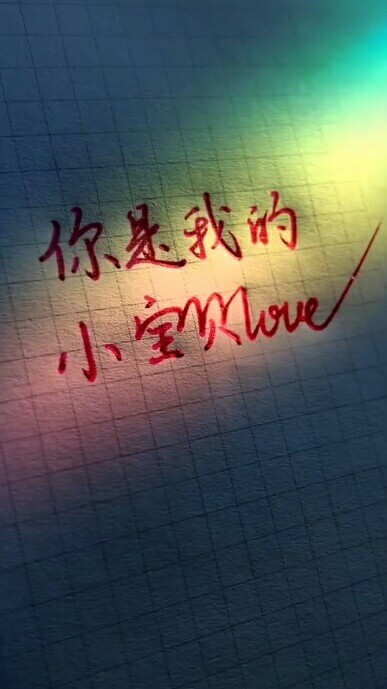 你是我的
小宝贝love